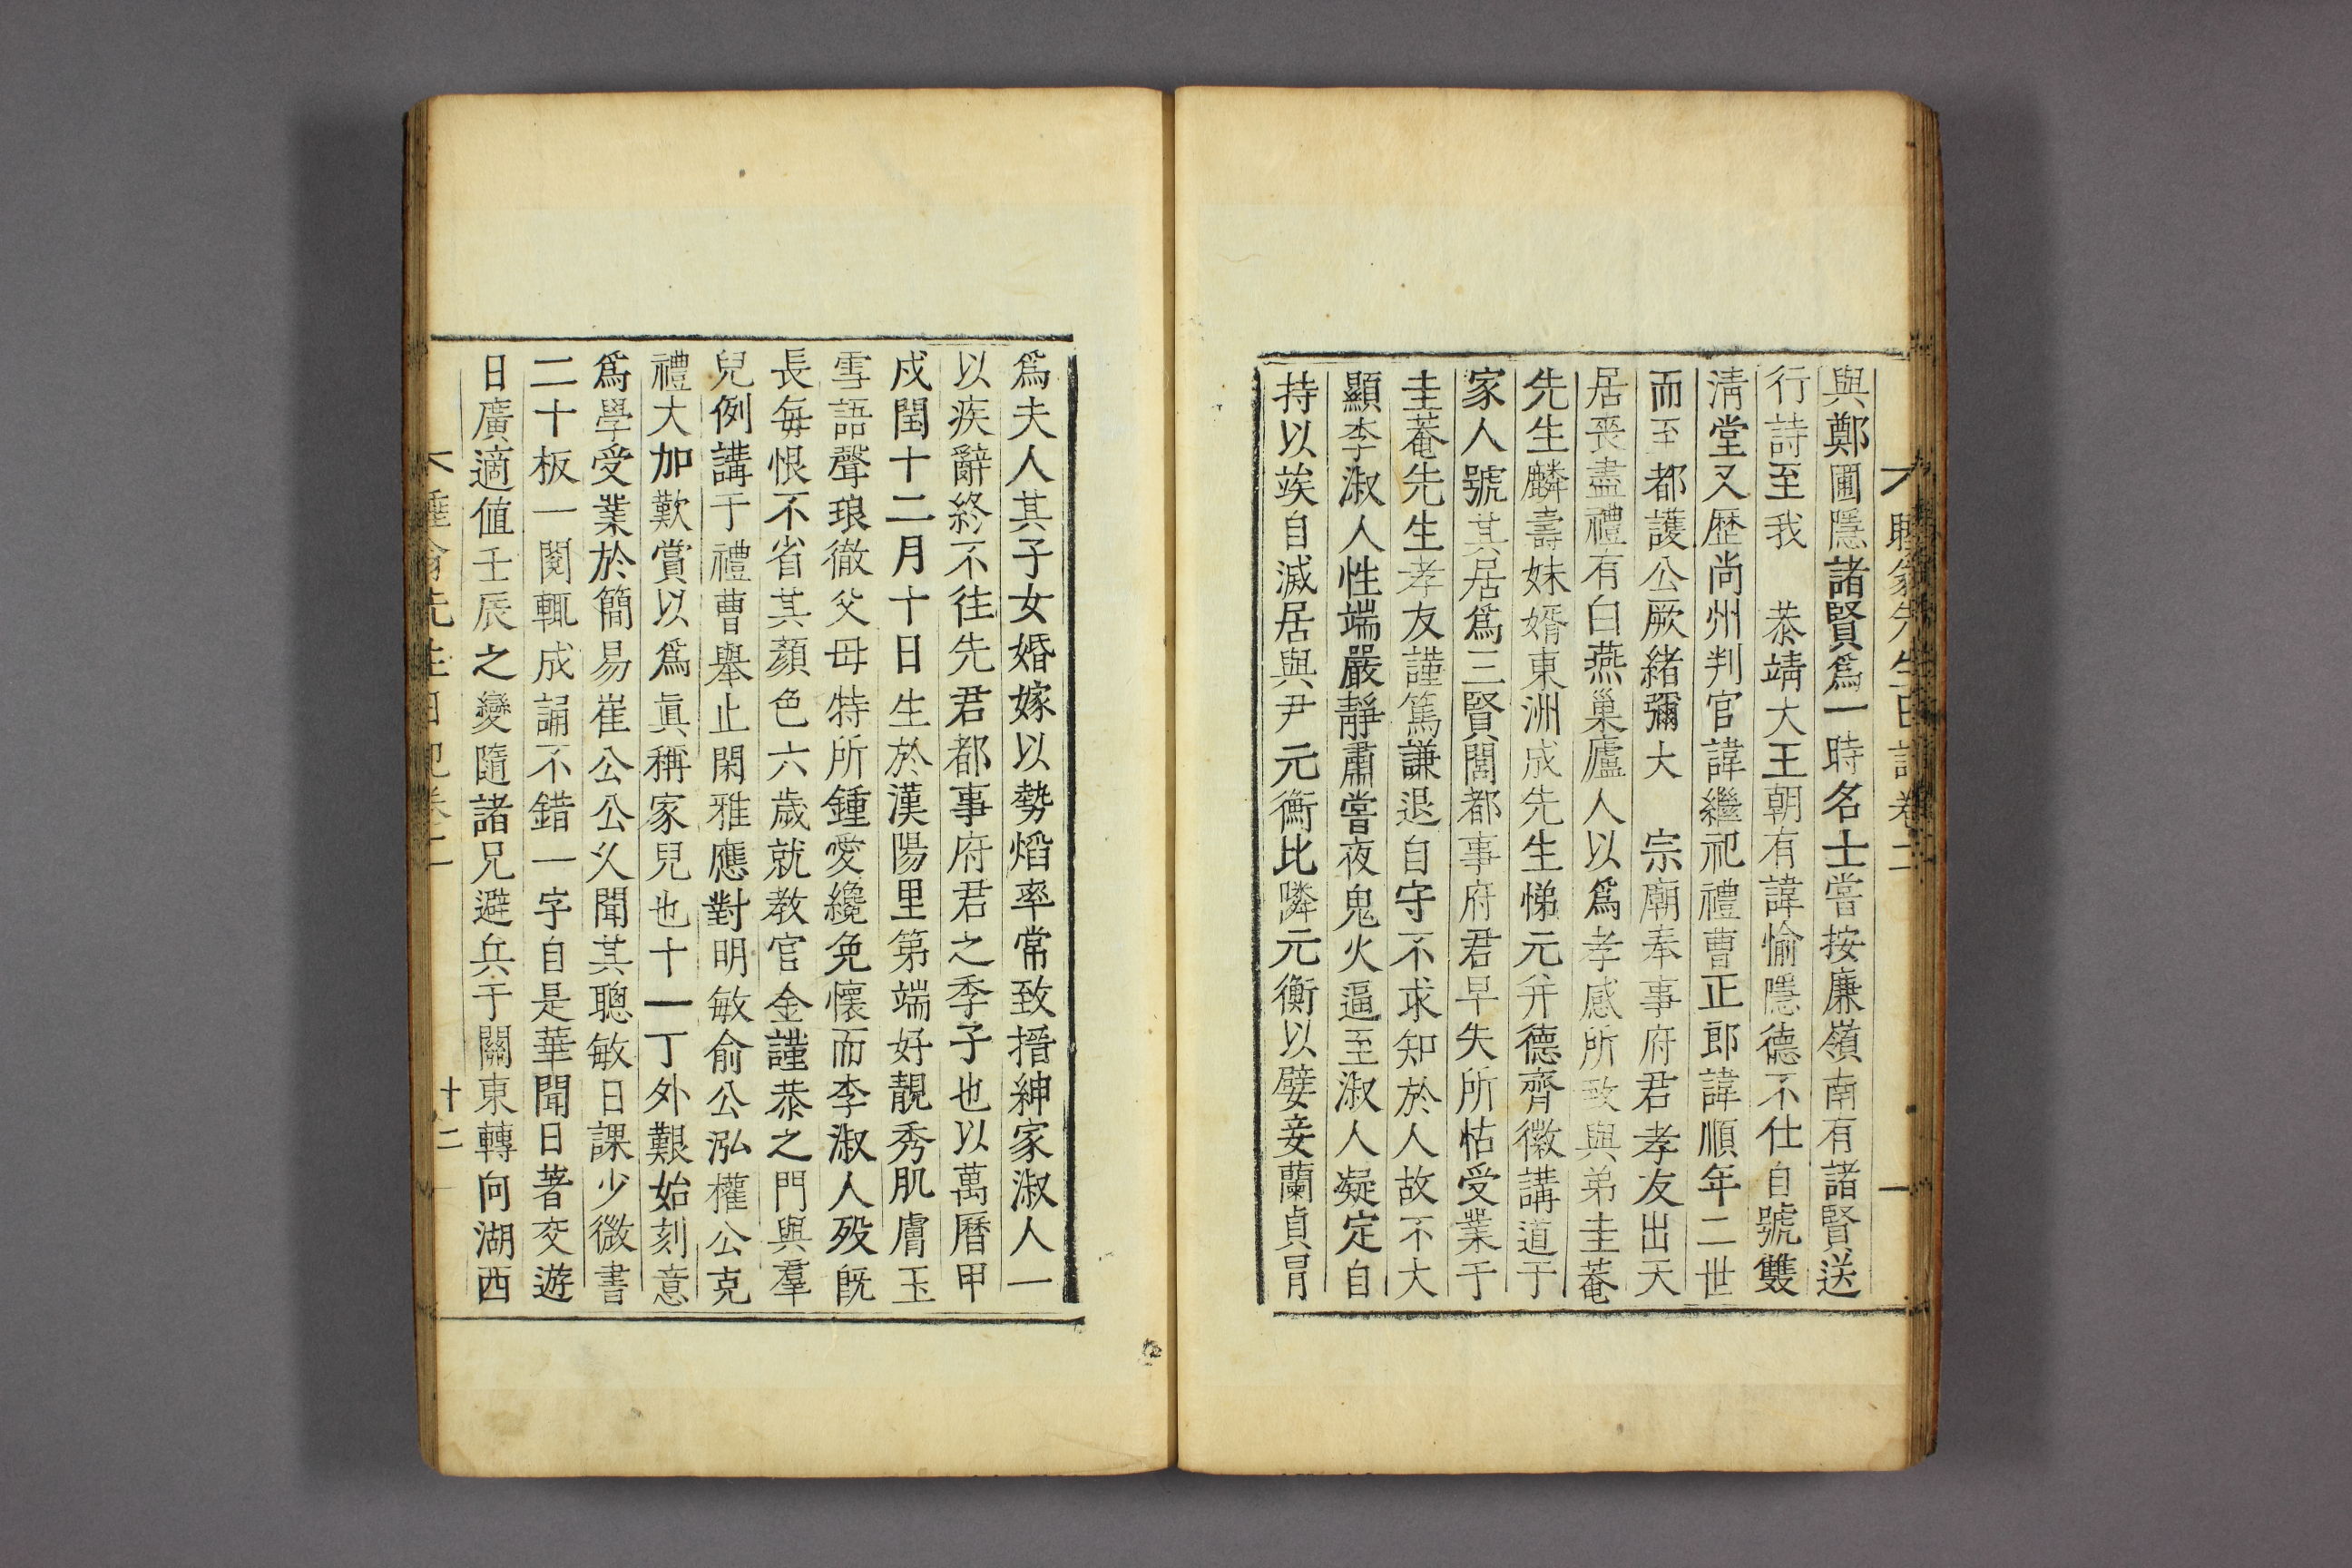 與鄭圃隱諸賢爲一時名士嘗按廉嶺南有諸賢送
行詩至我　恭靖大王朝有諱愉隱德不仕自號雙
淸堂又歷尙州判官諱繼祀禮曹正郎諱順年二世
而至都護公厥緖彌大　宗廟奉事府君孝友出天
居喪盡禮有白燕巢廬人以爲孝感所致與弟圭菴
先生麟壽妹婿東洲成先生悌元幷德齊徽講道于
家人號其居爲三賢閭都事府君早失所怙受業于
圭菴先生孝友謹篤謙退自守不求知於人故不大
顯李淑人性端嚴靜肅嘗夜鬼火逼至淑人凝定自
持以竢自滅居與尹元衡比隣元衡以嬖妾蘭貞冒
爲夫人其子女婚嫁以勢焰率常致搢紳家淑人一
以疾辭終不往先君都事府君之季子也以萬曆甲
戌閏十二月十日生於漢陽里第端好靚秀肌膚玉
雪語聲琅徹父母特所鍾愛纔免懷而李淑人歿旣
長每恨不省其顏色六歲就教官金謹恭之門與羣
兒例講于禮曹舉止閑雅應對明敏俞公泓權公克
禮大加歎賞以爲眞稱家兒也十一丁外艱始刻意
爲學受業於簡易崔公公乆聞其聰敏日課少微書
二十板一閱輒成誦不錯一字自是華聞日著交遊
日廣適値壬辰之變隨諸兄避兵于關東轉向湖西
十二